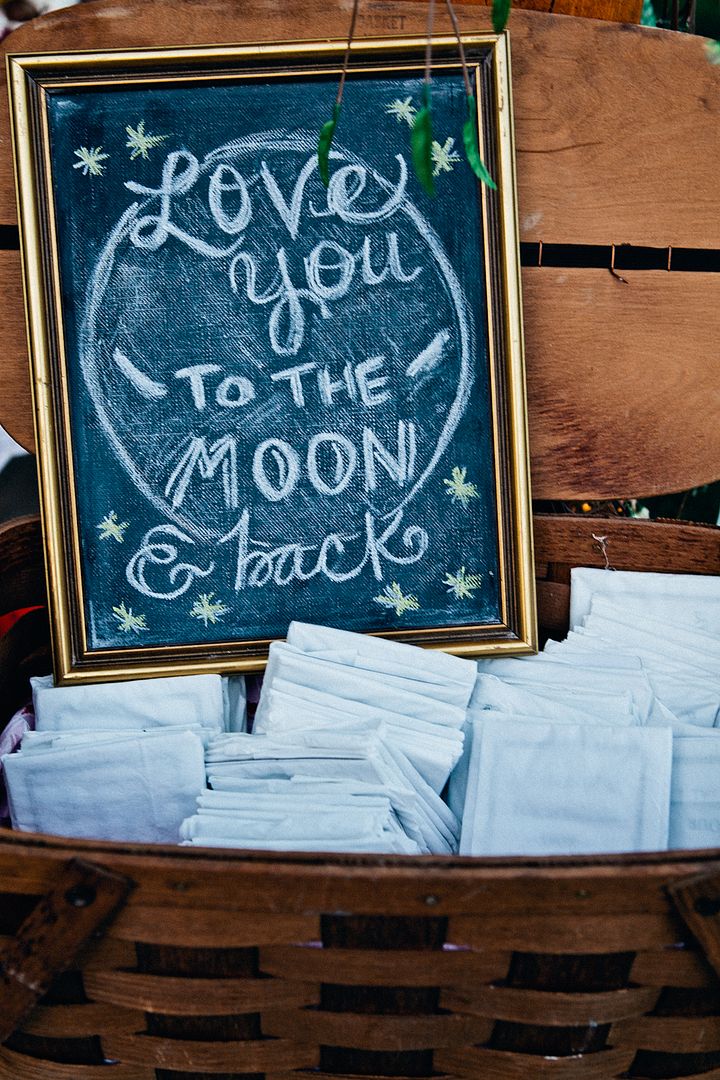 BASKET
Love
You
TO THE
MOON
& back